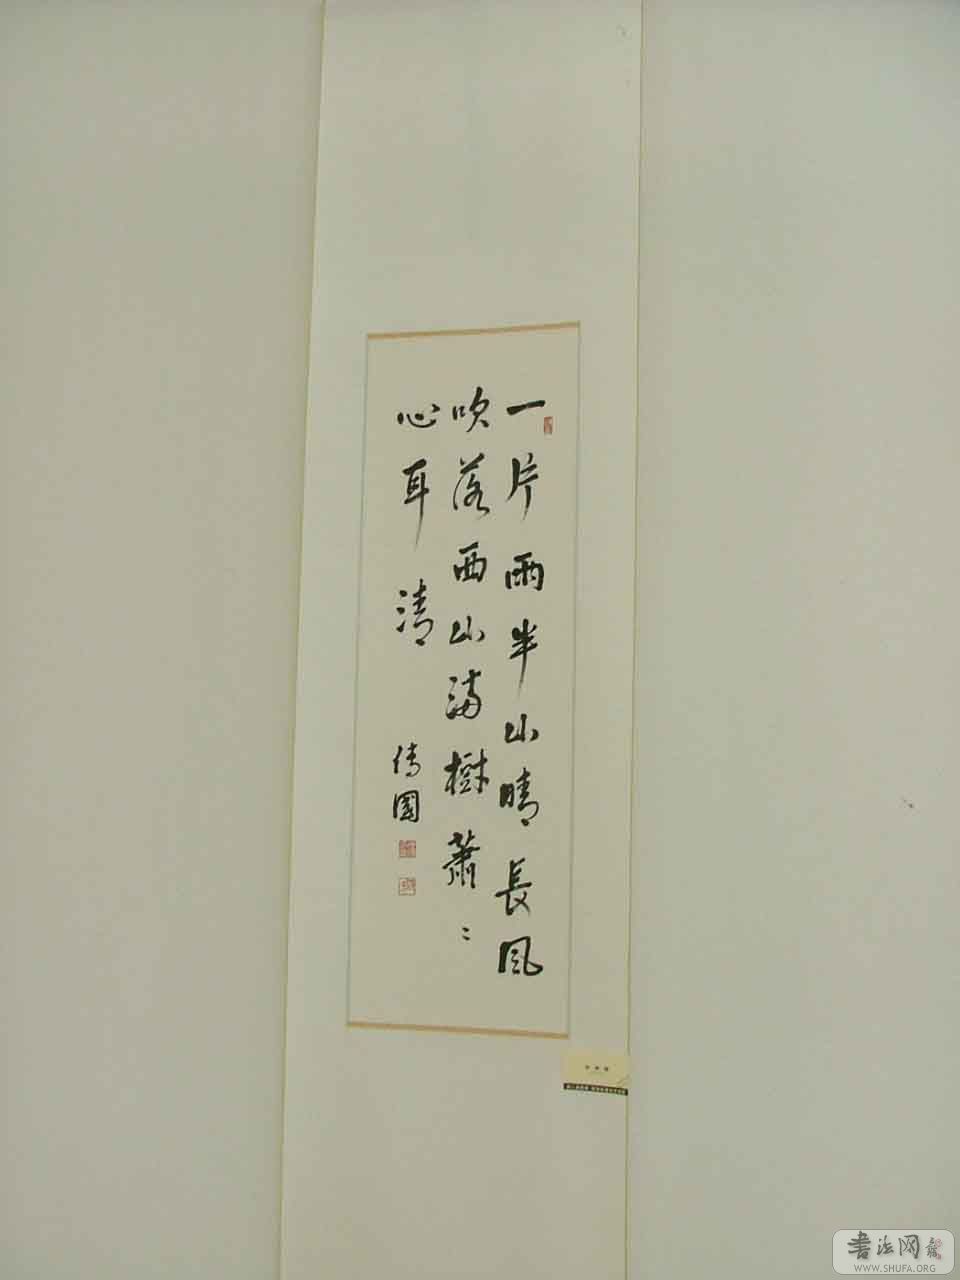 一片雨半山晴長風
吹落西山满樹蕭〻
心耳清
傳國
書法网
WWW.SHUFA.ORG